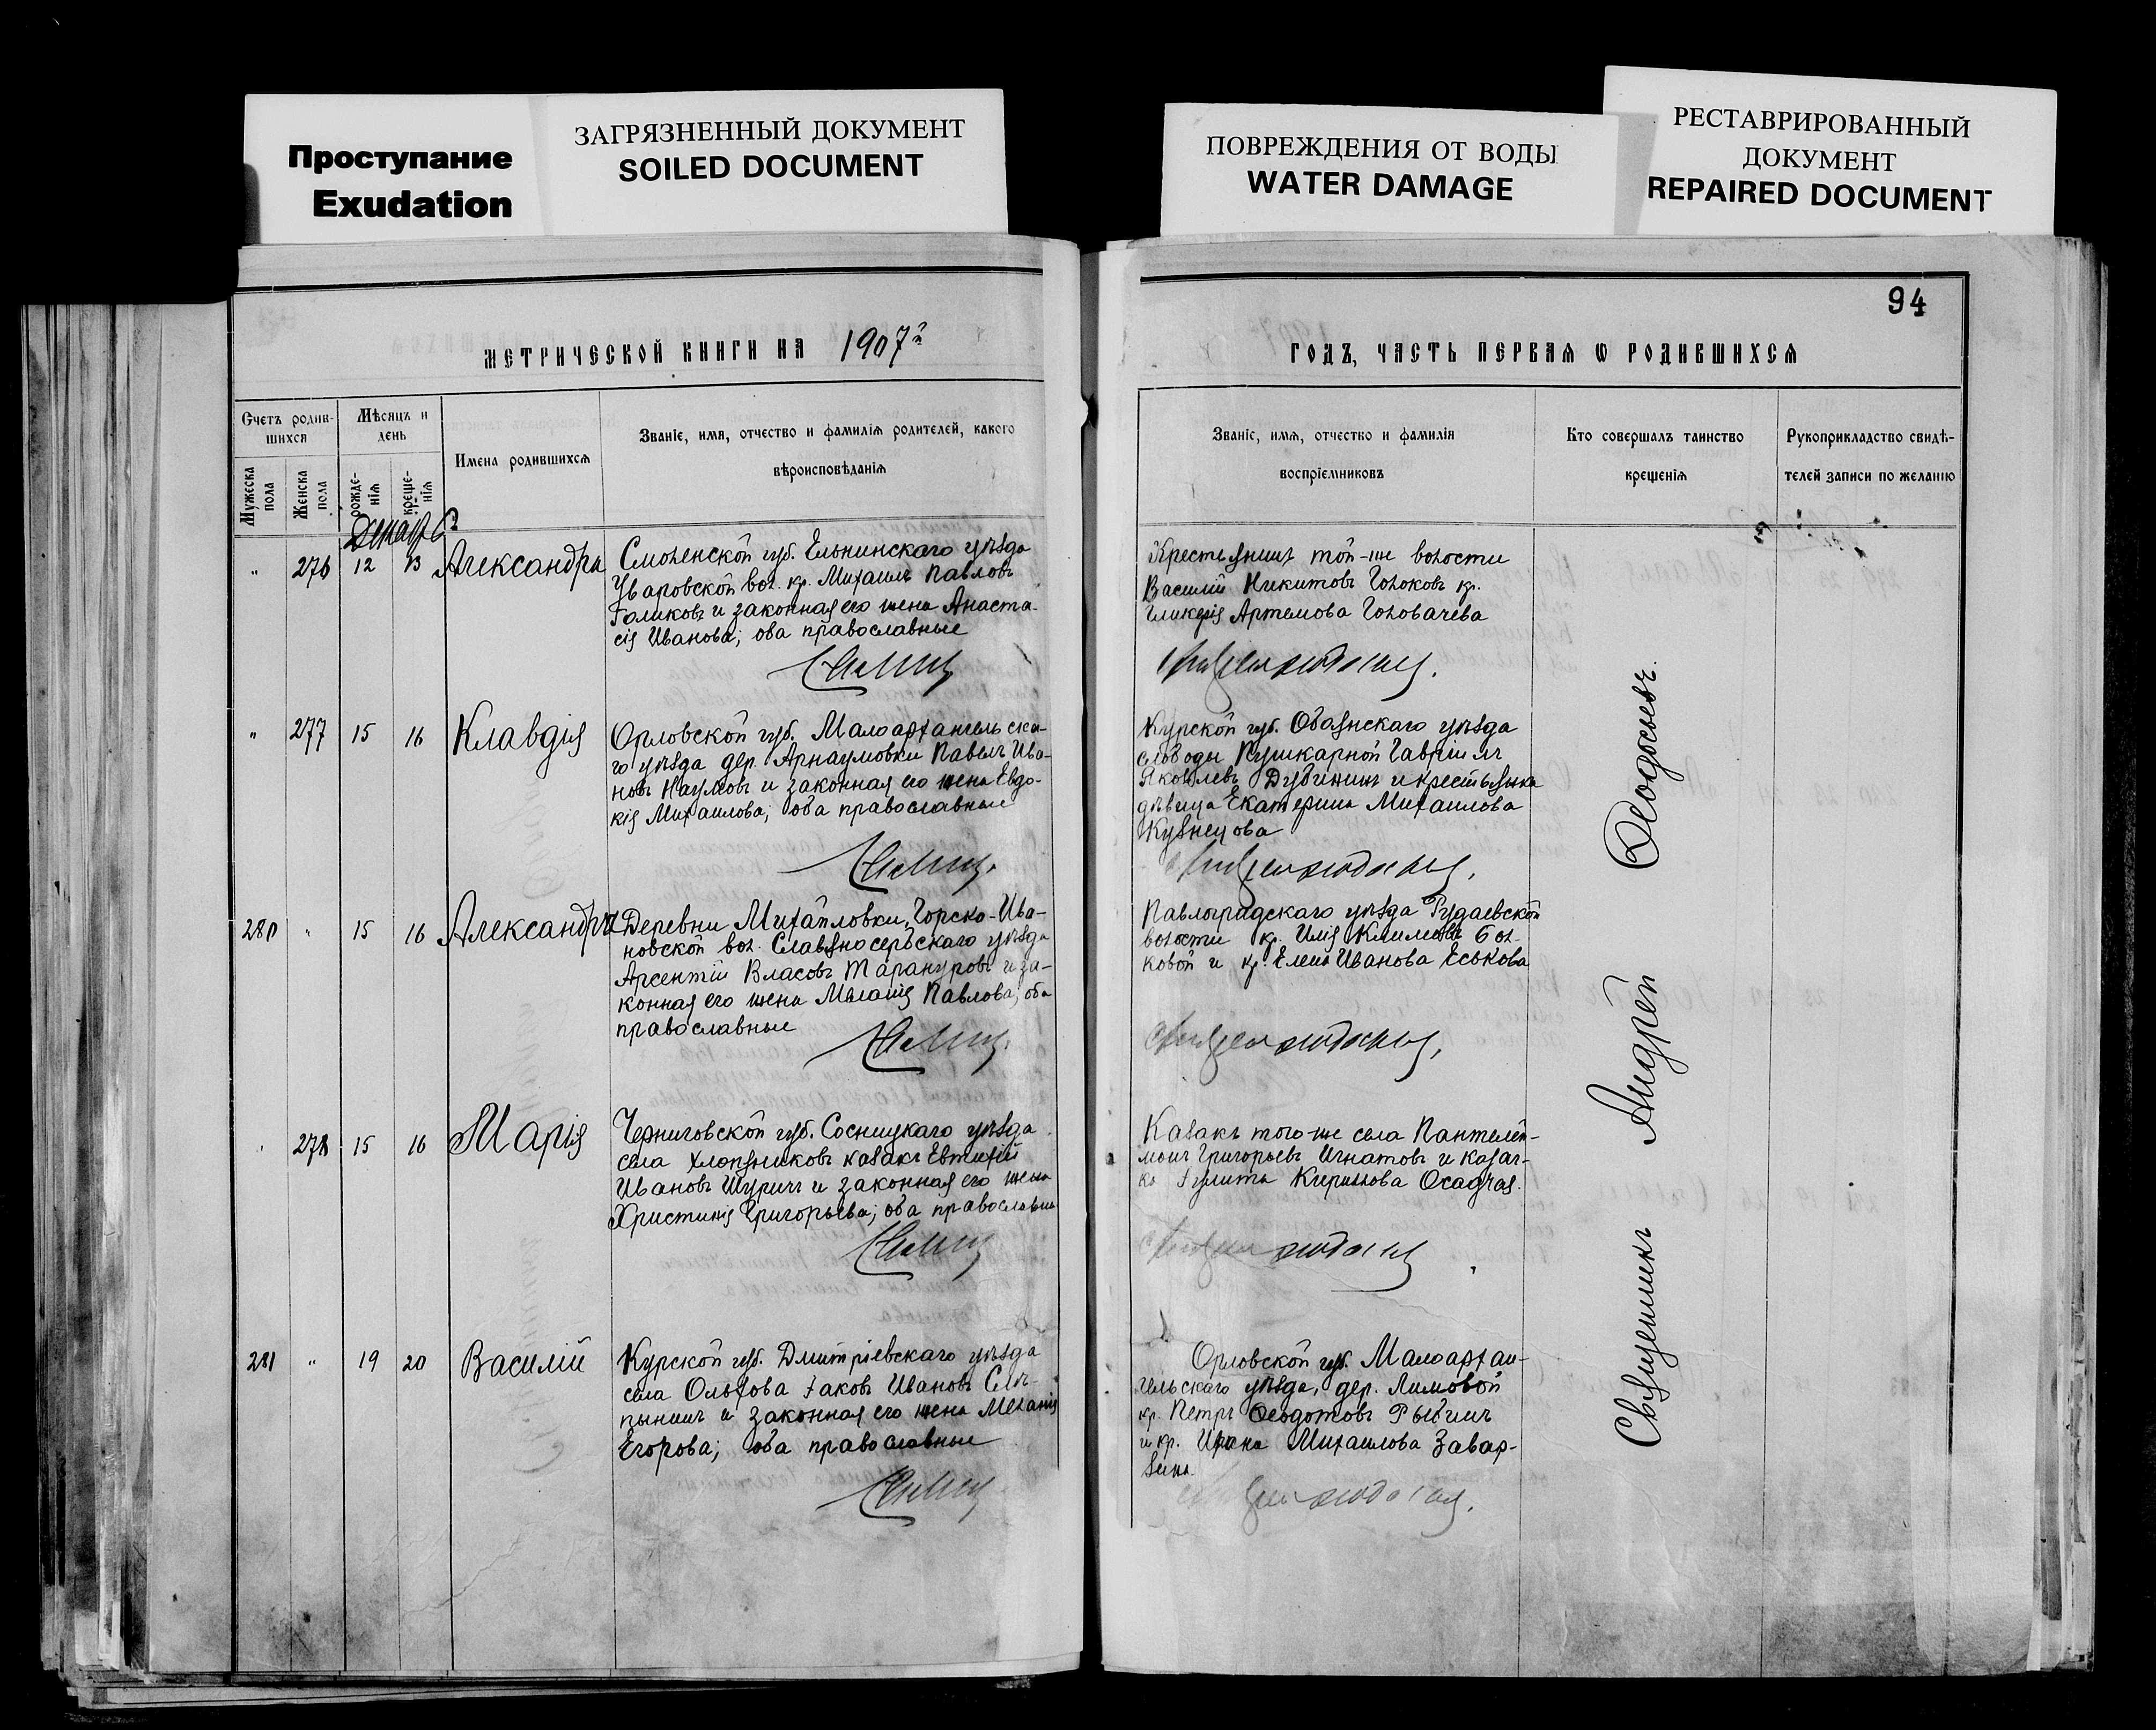 Проступание
Exudation
ЗАГРЯЗНЕННЫЙ ДОКУМЕНТ
SOILED DOCUMENT
ПОВРЕЖДЕНИЯ ОТ ВОДЫ
WATER DAMAGE
РЕСТАВРИРОВАННЫЙ
ДОКУМЕНТ
REPAIRED DOCUMENT
94
МЕТРИЧЕСКОЙ КНИГИ НА 1907й
ГОДЪ, ЧАСТЬ ПЕРВАЯ Ѡ РОДИВШИХСЯ
Счетъ родив-
шихся
Мѣсяцъ и
день
Имена родившихся
Званіе, имя, отчество и фамилія родителей, какого
вѣроисповѣданія
Мужеска
пола
Женска
пола
рожде-
нія
креще-
нія
Званіе, имя, отчество и фамилія
воспріемниковъ
Кто совершалъ таинство
крещенія
Рукоприкладство свидѣ-
телей записи по желанію
" 276 12 13 Александра
Смоленской губ. Ельнинскаго уѣзда
Уваровской вол. кр. Михаилъ Павловъ
Голиковъ и законная его жена Анаста-
сія Иванова; оба православные
Крестьянинъ той-же волости
Василій Никитовъ Голоковъ кр.
Гликерія Артемова Головачева
" 277 15 16 Клавдія
Орловской губ. Малоархангельска-
го уѣзда дер. Арнаумовки Павелъ Ива-
новъ Наумовъ и законная его жена Евдо-
кія Михаилова; оба православные
Курской губ. Обоянскаго уѣзда
слободы Пушкарной Гавріилъ
Яковлевъ Дубининъ и крестьянка
дѣвица Екатерина Михаилова
Кузнецова
280 " 15 16 Александръ
Деревни Михайловки, Горско-Ива-
новской вол. Славяносербскаго уѣзда
Арсентій Власовъ и за-
конная его жена Меланія Павлова; оба
православные
Павлоградскаго уѣзда
волости кр. Илія Климовъ
и кр. Елена Иванова Еськова
278 15 16 Марія
Черниговской губ. Сосницкаго уѣзда
села Хлопяниковъ казакъ Евтихій
Ивановъ и законная его жена
Христинія Григорьева; оба православные
Казакъ того-же села Пантелей-
монъ Григорьевъ Игнатовъ и казач-
ка Кириллова
281 " 19 20 Василій
Курской губ. Дмитріевскаго уѣзда
села Ольхова Іаковъ Ивановъ
и законная его жена Меланія
Егорова; оба православные
Орловской губ. Малоархан-
гельскаго уѣзда, дер. Лимовой
кр. Петръ Ѳеодотовъ
и кр. Ирина Михаилова Завар-
зина
Священникъ Андрей Ѳеодосьевъ